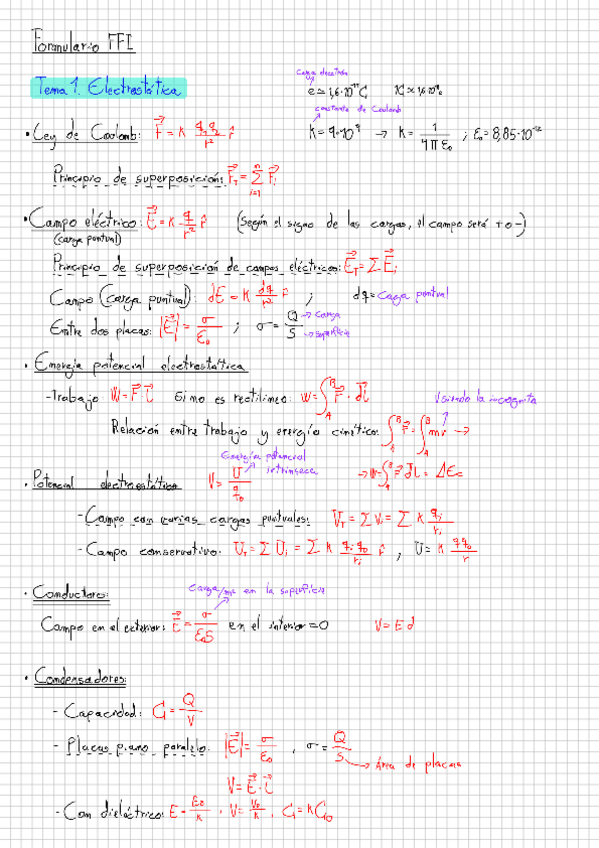 Formulario FFI
Carga electrón
Tema 1. Electrostática e ≃ 1,6·10⁻¹⁹ C
constante de Coulomb
• Ley de Coulomb: F⃗ = K q₁q₂/r² r̂ K = 9·10⁹ → K = 1/4πε₀ ; ε₀ = 8,85·10⁻¹²
Principio de superposición: F⃗_T = Σⁿᵢ₌₁ F⃗ᵢ
• Campo eléctrico: E⃗ = K q/r² r̂ (Según el signo de las cargas, el campo será + o -)
(carga puntual)
Principio de superposición de campos eléctricos: E⃗_T = Σ E⃗ᵢ
Campo (carga puntual): dE = K dq/r² r̂ ; dq = Carga puntual
Entre dos placas: |E⃗| = σ/ε₀ ; σ = Q/S → Carga → superficie
• Energía potencial electrostática
- Trabajo: W = F⃗·l⃗ Si no es rectilíneo: W = ∫_A^B F⃗·dl⃗ Usando la incognita
Relación entre trabajo y energía cinética: ∫_A^B F⃗ = ∫_A^B →
Energía potencial intrínseca → W = ∫_A^B F⃗ dl = ΔEc
• Potencial electrostático V = U/q₀
- Campo con varias cargas puntuales: V_T = Σ Vᵢ = Σ K qᵢ/rᵢ
- Campo conservativo: U_T = Σ Uᵢ = Σ K qᵢ·q₀/rᵢ r̂ , U = K q q₀/r
• Conductores: Carga/m² en la superficie
Campo en el exterior: E⃗ = σ/ε₀S en el interior = 0 V = E d
• Condensadores:
- Capacidad: C = Q/V
- Placas plano paralelo: |E⃗| = σ/ε₀ , σ = Q/S → Área de placas
V = E⃗·l⃗
- Con dieléctrico: E = E₀/K , V = V₀/K , C = K C₀